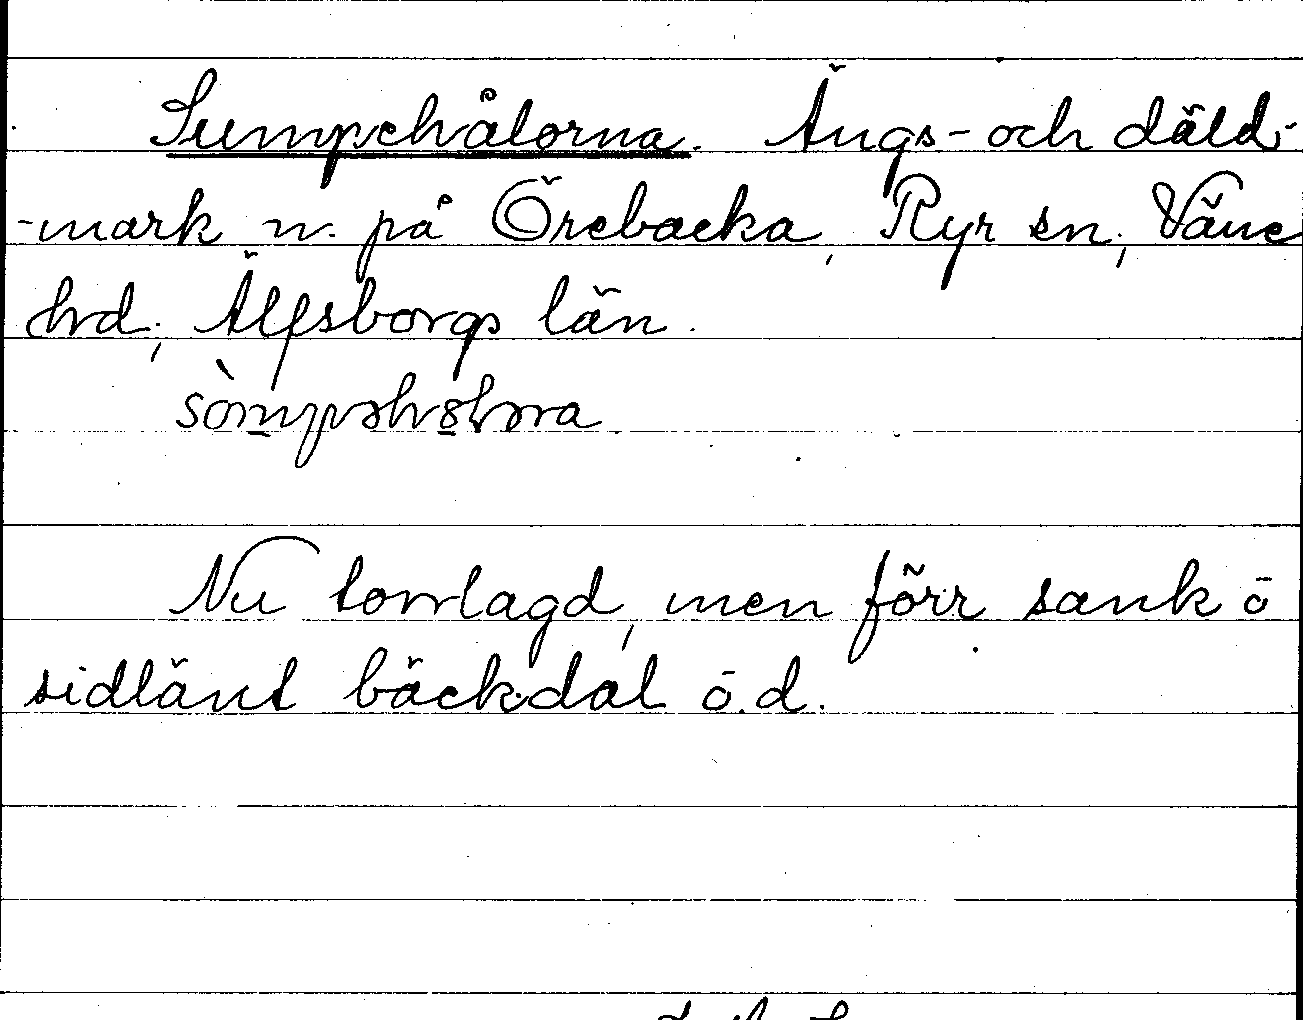 Sumpehålorna. Ängs- och däld-
-mark n. på Örebacka, Ryr sn., Väne
hrd., Älfsborgs län.
Nu torrlagd, men förr sank o
sidlänt bäckdal o.d.